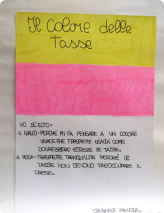 Il Colore delle
Tasse
HO SCELTO:
IL GIALLO: PERCHÉ MI FA PENSARE A UN COLORE
VIVACE CHE
ESSERE LE TASSE.
IL ROSA: TRASMETTE TRANQUILLITÀ PERCHÉ LE
TASSE NON DEVONO PREOCCUPARE IL
PAESE.